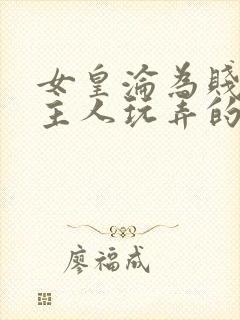 女皇淪為賤
主人玩弄的
廖福成